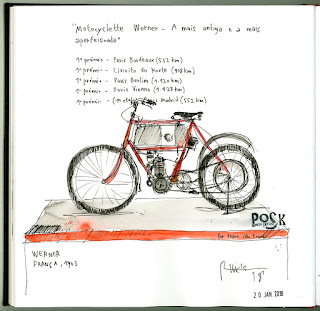 "Motocyclette Werner - A mais antiga e a mais
aperfeiçoada"
1º prémio - Paris Bordeaux (552 km)
1º prémio - Circuito do Norte (908 km)
1º prémio - Paris Berlim (1.120 km)
1º prémio - Paris Vienna (1.428 km)
1º prémio - (1ª etapa) Paris Madrid (552 km)
POSK
WERNER
FRANÇA, 1903
20 JAN 2018